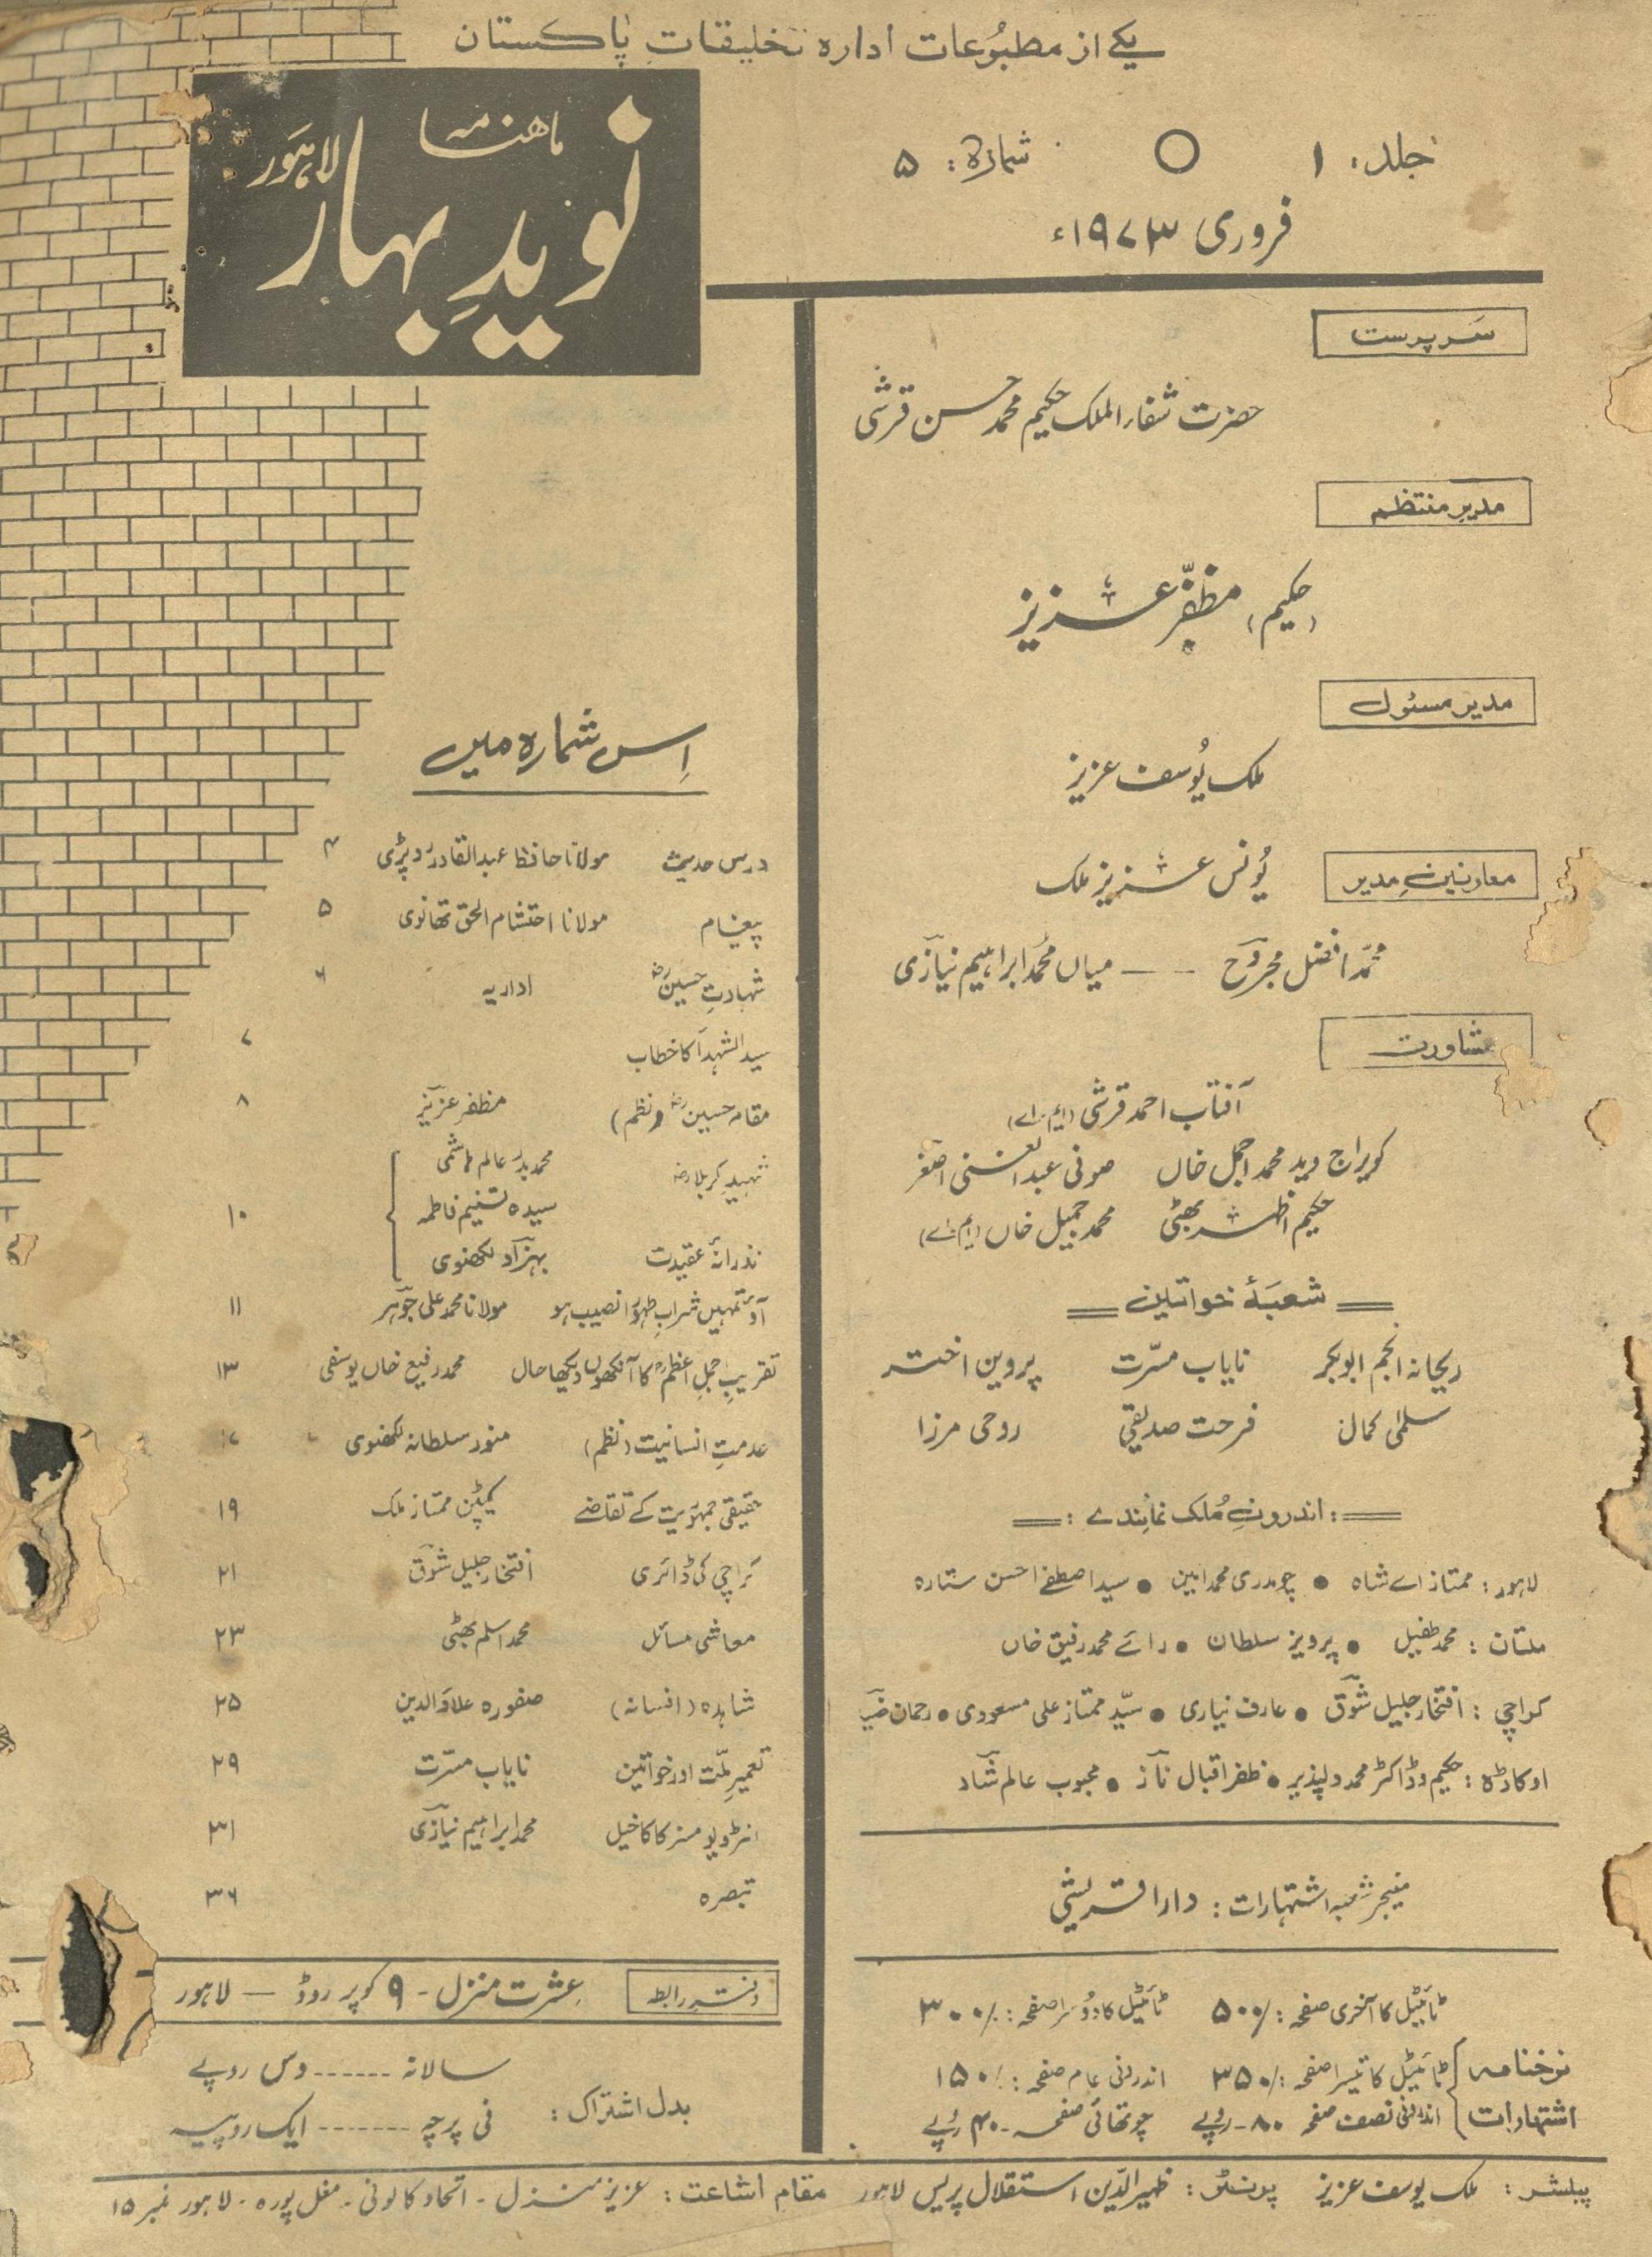 یکے از مطبُوعات ادارہ تخلیقاتِ پاکستان
ماھنامہ
نویدِ بہار
لاہَور
جلد: ۱ شمارہ: ۵
فروری ۱۹۷۳ء
سَرپرست
حضرت شفاء الملک حکیم محمد حسن قرشی
مدیرِ منتظم
(حکیم) مظفّر عزیز
مدیر مسئول
ملک یُوسف عزیز
معاونینِ مدیر
یُونس عزیز ملک
محمّد افضل مجروح — میاں محمُد ابراہیم نیازی
مشاورت
آفتاب احمد قرشی (ایم۔اے)
کویراج وید محمد اجمل خاں صوفی عبدالغنی اصغر
حکیم اظہر بھٹی محمد جمیل خاں (ایم۔اے)
شعبۂ خواتین
ریحانہ انجم ابوبکر نایاب مسرّت پروین اختر
سلمٰی کمال فرحت صدیقی روحی مرزا
:اندرونِ مُلک نمائندے:
لاہور: ممتاز اے شاہ • چوہدری محمد امین • سید اصطفےٰ احسن ستارہ
ملتان: محمد طفیل • پرویز سلطان • رائے محمد رفیق خاں
کراچی: افتخار جلیل شوق • عارف نیاری • سیّد ممتاز علی مسعودی • رحمان
اوکاڑہ: حکیم و ڈاکٹر محمد دلپذیر • ظفر اقبال ناز • محبوب عالم شاد
مینجر شعبہ اشتہارات: دارا قریشی
نرخنامہ اشتہارات
ٹائیٹل کا آخری صفحہ: /۵۰۰ ٹائیٹل کا دُوسرا صفحہ: /۳۰۰
ٹائیٹل کا تیسرا صفحہ: /۳۵۰ اندرونی عام صفحہ: /۱۵۰
اندرونی نصف صفحہ ۸۰- روپے چوتھائی صفحہ ۔۴۰ روپے
اِس شمارہ میں
درس حدیث مولانا حافظ عبدالقادر روپڑی ۴
پیغام مولانا احتشام الحق تھانوی ۵
شہادتِ حسینؓ اداریہ ۶
سید الشہدا کا خطاب ۷
مقام حسینؓ (نظم) مظفر عزیز ۸
شہیدِ کربلاؓ محمد بدر عالم ہاشمی
سیدہ تسنیم فاطمہ ۱۰
نذرانۂ عقیدت بہزاد لکھنوی
آؤ تمہیں شرابِ طہوراً نصیب ہو مولانا محمد علی جوہر ۱۱
تقریبِ اجملِ اعظمؒ کا آنکھوں دیکھا حال محمد رفیع خاں یوسفی ۱۳
خدمتِ انسانیت (نظم) منور سلطانہ لکھنوی ۱۷
حقیقی جمہوریت کے تقاضے کیپٹن ممتاز ملک ۱۹
کراچی کی ڈائری افتخار جلیل شوق ۲۱
معاشی مسائل محمد اسلم بھٹی ۲۳
شاہدہ (افسانہ) صفورہ علاؤالدین ۲۵
تعمیرِ ملّت اور خواتین نایاب مسرّت ۲۹
انٹرویو مسز کاکاخیل محمد ابراہیم نیازی ۳۱
تبصرہ ۳۶
دفتر رابطہ عِشرت منزل - ۹ کوپر روڈ — لاہور
بدل اشتراک:
سالانہ ------ دس روپے
فی پرچہ ------- ایک روپیہ
پبلشر: ملک یوسف عزیز پرنٹر: ظہیر الدّین استقلال پریس لاہور مقامِ اشاعت: عزیز منزل - اتحاد کالونی - مغل پورہ - لاہور نمبر ۱۵